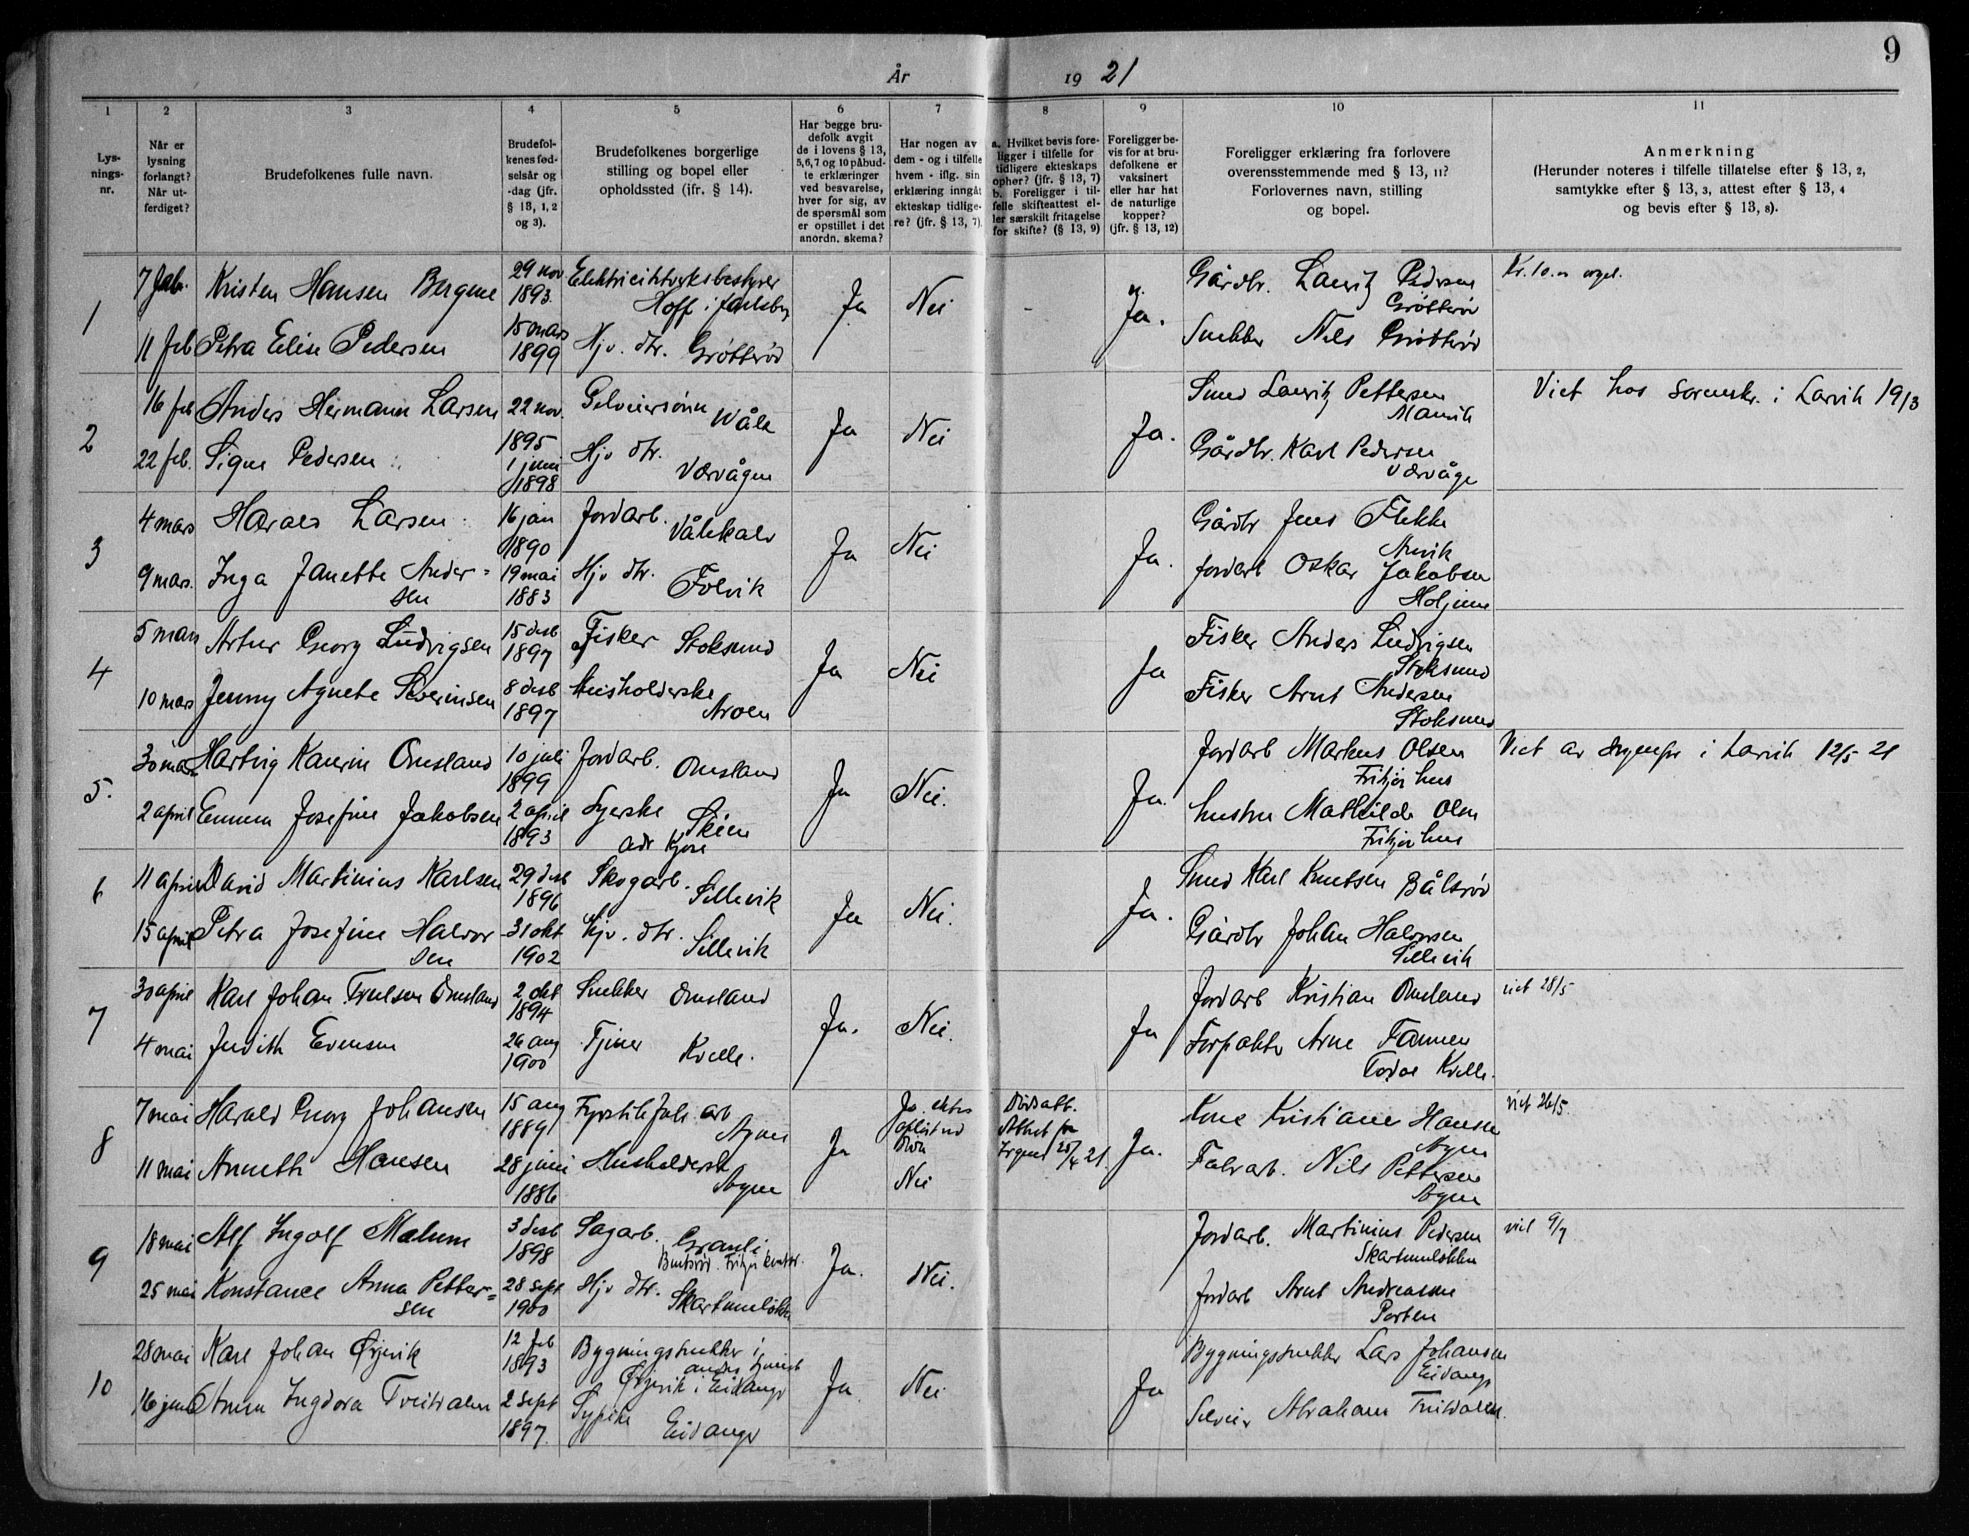 9
År 1921
1 2 3 4 5 6 7 8 9 10 11
Lys-
nings-
nr.
Når er
lysning
forlangt?
Når ut-
ferdiget?
Brudefolkenes fulle navn.
Brudefol-
kenes fød-
selsår og
-dag (jfr.
§ 13, 1, 2
og 3).
Brudefolkenes borgerlige
stilling og bopel eller
opholdssted (jfr. § 14).
Har begge bru-
defolk avgit
de i lovens § 13,
5,6,7 og 10 påbud-
te erklæringer
ved besvarelse,
hver for sig, av
de spørsmål som
er opstillet i det
anordn. skema?
Har nogen av
dem - og i tilfelle
hvem - iflg. sin
erklæring inngåt
ekteskap tidlige-
re? (jfr. § 13, 7).
a. Hvilket bevis fore-
ligger i tilfelle for
tidligere ekteskaps
ophør? (jfr. § 13, 7)
b. Foreligger i til-
felle skifteattest el-
ler særskilt fritagelse
for skifte? (§ 13, 9)
Foreligger be-
vis for at bru-
defolkene er
vaksinert
eller har hat
de naturlige
kopper?
(jfr. § 13, 12)
Foreligger erklæring fra forlovere
overensstemmende med § 13, 11?
Forlovernes navn, stilling
og bopel.
Anmerkning
(Herunder noteres i tilfelle tillatelse efter § 13, 2,
samtykke efter § 13, 3, attest efter § 13, 4
og bevis efter § 13, 8).
1
7 feb.
11 feb
Kristen Hansen Bergene
Petra Elise Pedersen
29 nov
1893
15 mars
1899
Elektricitetverksbestyrer
Hoff i Jarlsberg
Hjv. dtr. Grøtterød
Ja
Nei
-
Ja.
Gårdbr. Lauritz Pedersen
Grøtterød
Snekker Nils Grøtterød
Kr. 10.
2
16 feb
22 feb.
Anders Hermann Larsen
Signe Pedersen
22 nov.
1895
1 juni
1898
Selveiersønn
Våle
Hjv dtr.
Værvågen
Ja
Nei
Ja.
Smed Lauritz Pettersen
Gårdbr. Karl Pedersen
Værvåge
Viet hos sorenskr. i Larvik 19/3
3
4 mars
9 mars.
Harald Larsen
Inga Janette Ander-
sen
16 jan
1890
19 mai
1883
Jordarb.
Hjv dtr.
Folvik
Ja
Nei
Ja.
Gårdbr Jens Flekke
Jordarb Oskar Jakobsen
4
5 mars
10 mars
Artur Georg Ludvigsen
Jenny Agnete Severinsen
15 desb
1897
8 desb
1897
Fisker Stoksund
Husholderske
Aroen
Ja
Nei
Ja
Fisker Anders Ludvigsen
Stoksund
Fisker Arnt Andersen
Stoksund
5.
30 mars
2 april
Hartvig Kaurin Omsland
Emma Josefine Jakobsen
10 juli
1899
2 april
1893
Jordarb. Omsland
Syerske Skien
adr Kjose
Ja
Nei.
Ja.
Jordarb Markus Olsen
hustru Mathilde Olsen
Viet av i Larvik 12/5 21
6
11 april
15 april
David Martinius Karlsen
Petra Josefine Halvor
sen
29 desb
1896
31 okt
1902
Skogarb.
Sillevik
Hjv. dtr.
Sillevik
Ja
Nei.
Ja.
Smed Karl Knutsen Bålsrød
Gårdbr Johan Halvorsen
Sillevik
7
30 april
4 mai
Karl Johan Trulsen Omsland
Judith Evensen
2 okt
1894
26 aug
1900
Snekker Omsland
Tjener Kvelle.
Ja.
Nei.
Ja
Jordarb Kristian Omsland
Forpakter Arne Fannem
Kvelle.
viet 28/5
8
7 mai
11 mai
Harald Georg Johansen
Annette Hansen
15 aug
1889
28 juni
1886
Fyrstikfabr arb
Agnes
Husholderske
Agnes
Ja
Ja. ektes
opløst ved
død
Nei
Dødsatt.
25/4 21
Ja.
Kone Kristiane Hansen
Agnes
Fabr arb. Nils Pettersen
Agnes
viet 26/5.
9
18 mai
25 mai
Alf Ingolf Malum
Konstance Anna Petter-
sen
3 desb
1898
28 sept
1900
Sagarb. Granli
Hjv dtr.
Skartumløkka
Ja.
Nei.
Jordarb. Martinius Pedersen
Skartumløkken
Jordarb Arnt Andreassen
Porten
viet 9/7
10
28 mai
16 juni
Karl Johan Ørjevik
Anna Ingdora Treidalen
12 feb
1893
2 sept
1897.
Bygningssnekker i
Ørjevik i Eidanger
Sypike
Eidanger
Ja
Nei
Ja
Bygningssnekker Lars Johansen
Eidanger
Selveier Abraham Treidalen.